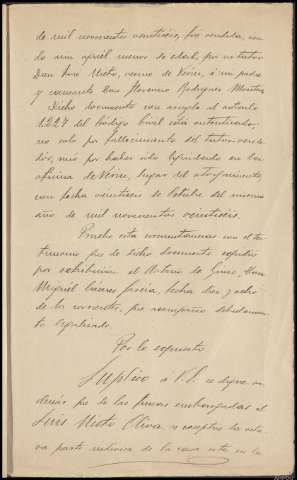 de mil novecientos veintiséis, fué vendida, con
lo un aquel menor de edad, por su tutor
Don José Nieto, vecino de Yerice, á mi padre
y causante Don Florencio Rodríguez Montes
Dicho documento con arreglo al artículo
1.227 del Código Civil está autenticado,
no solo por fallecimiento del tutor vende-
dor, sino por haber sido liquidado en la
oficina de , lugar del otorgamiento,
con fecha veintiseis de Octubre del mismo
año de mil novecientos veintiséis.
Pruebo esta circunstancia con el tes-
timonio que de dicho documento expidió
por exhibición el Notario de , Don
Miguel Cáceres García, fecha diez y ocho
de los corrientes, que acompaño debidamen-
te legalizado.
Por lo expuesto
Suplico á V.S. se digne or-
denar que de las fincas embargadas al
Luis Nieto Oliva se exceptúe la octa-
va parte indivisa de la casa sita en la